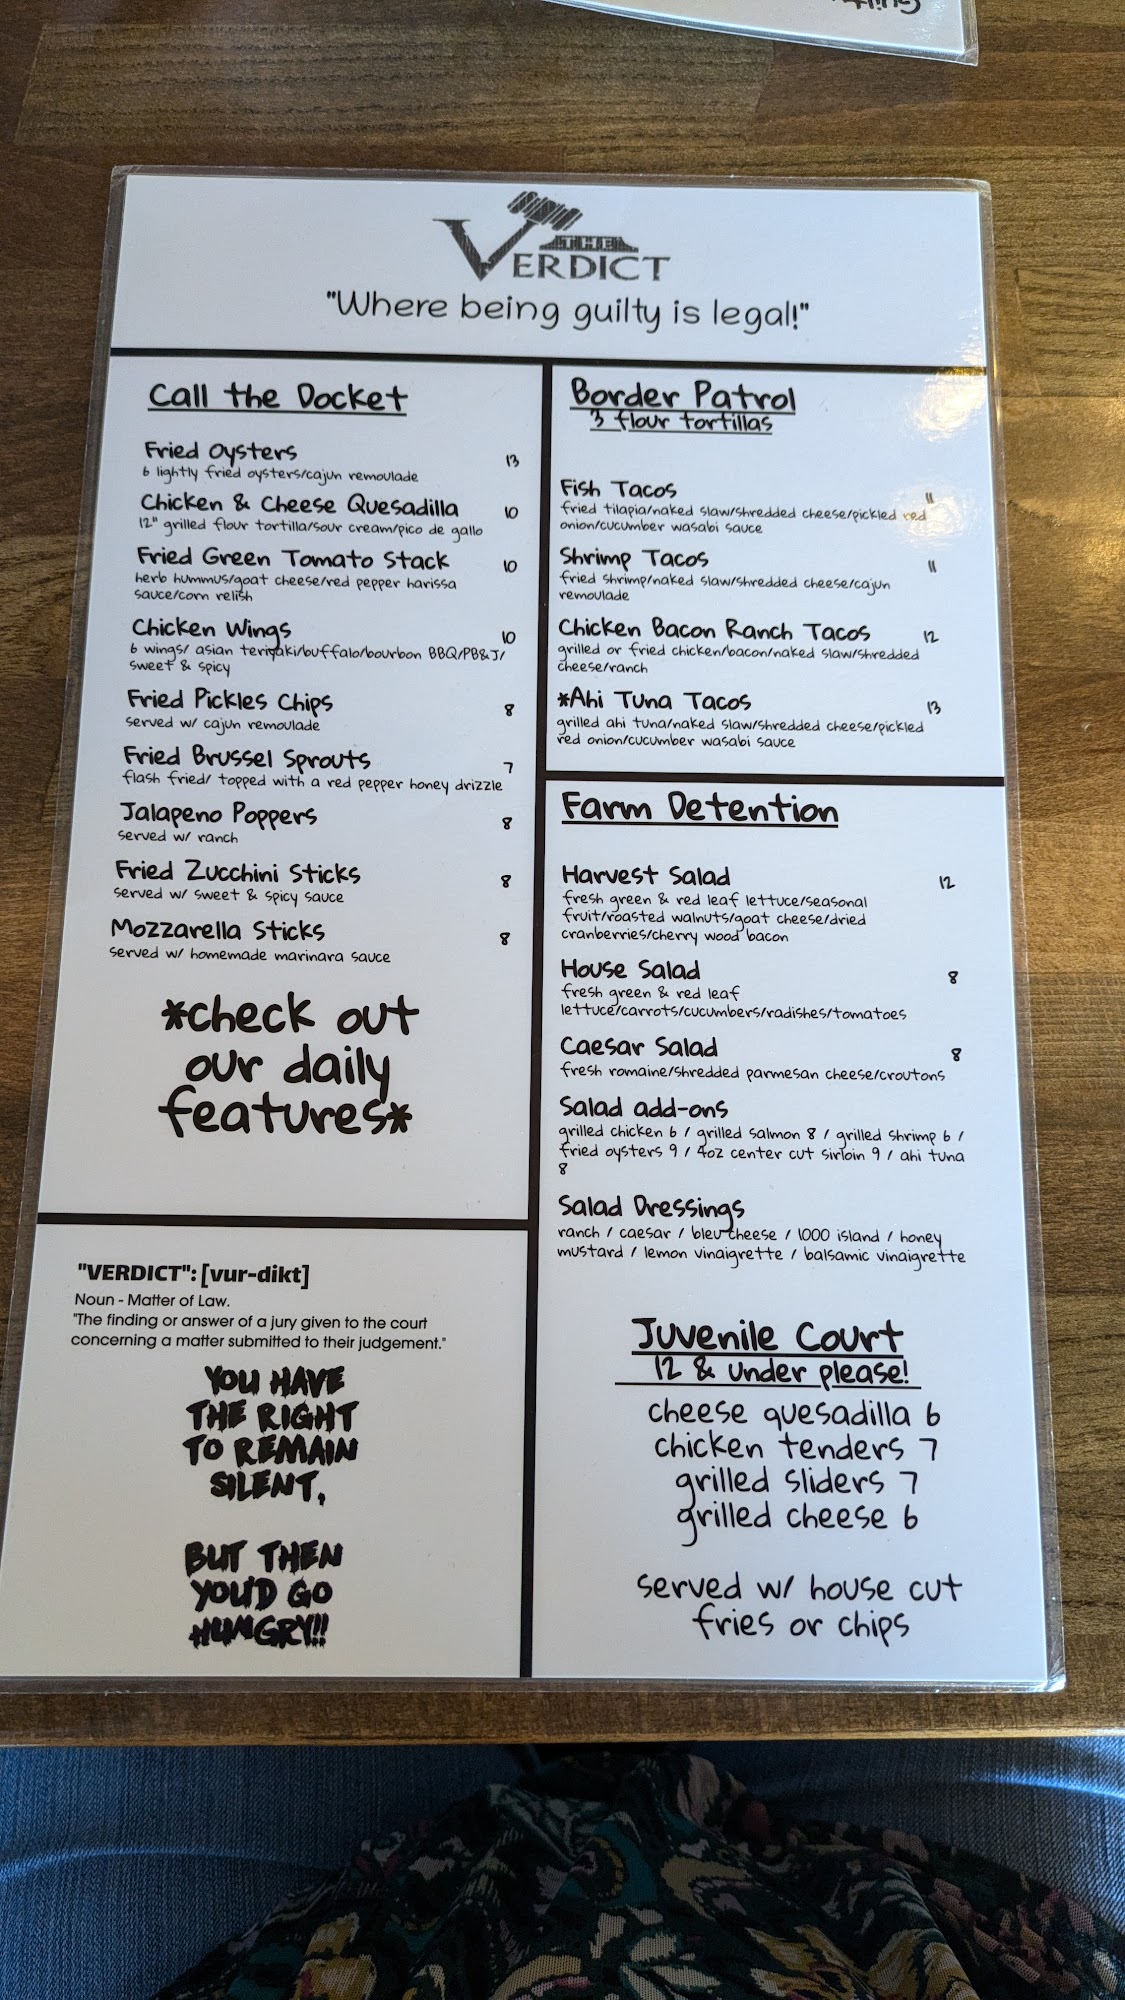 THE
VERDICT
"Where being guilty is legal!"
Call the Docket
Fried Oysters 13
6 lightly fried oysters/cajun remoulade
Chicken & Cheese Quesadilla 10
12" grilled flour tortilla/sour cream/pico de gallo
Fried Green Tomato Stack 10
herb hummus/goat cheese/red pepper harissa
sauce/corn relish
Chicken Wings 10
6 wings/ asian teriyaki/buffalo/bourbon BBQ/PB&J/
sweet & spicy
Fried Pickles Chips 8
served w/ cajun remoulade
Fried Brussel Sprouts 7
flash fried/ topped with a red pepper honey drizzle
Jalapeno Poppers 8
served w/ ranch
Fried Zucchini Sticks 8
served w/ sweet & spicy sauce
Mozzarella Sticks 8
served w/ homemade marinara sauce
*check out
our daily
features*
"VERDICT": [vur-dikt]
Noun - Matter of Law.
"The finding or answer of a jury given to the court
concerning a matter submitted to their judgement."
YOU HAVE
THE RIGHT
TO REMAIN
SILENT,
BUT THEN
YOU'D GO
HUNGRY!!
Border Patrol
3 flour tortillas
Fish Tacos 11
fried tilapia/naked slaw/shredded cheese/pickled red
onion/cucumber wasabi sauce
Shrimp Tacos 11
fried shrimp/naked slaw/shredded cheese/cajun
remoulade
Chicken Bacon Ranch Tacos 12
grilled or fried chicken/bacon/naked slaw/shredded
cheese/ranch
*Ahi Tuna Tacos 13
grilled ahi tuna/naked slaw/shredded cheese/pickled
red onion/cucumber wasabi sauce
Farm Detention
Harvest Salad 12
fresh green & red leaf lettuce/seasonal
fruit/roasted walnuts/goat cheese/dried
cranberries/cherry wood bacon
House Salad 8
fresh green & red leaf
lettuce/carrots/cucumbers/radishes/tomatoes
Caesar Salad 8
fresh romaine/shredded parmesan cheese/croutons
Salad add-ons
grilled chicken 6 / grilled salmon 8 / grilled shrimp 6 /
fried oysters 9 / 4oz center cut sirloin 9 / ahi tuna
8
Salad Dressings
ranch / caesar / bleu cheese / 1000 island / honey
mustard / lemon vinaigrette / balsamic vinaigrette
Juvenile Court
12 & under please!
cheese quesadilla 6
chicken tenders 7
grilled sliders 7
grilled cheese 6
served w/ house cut
fries or chips